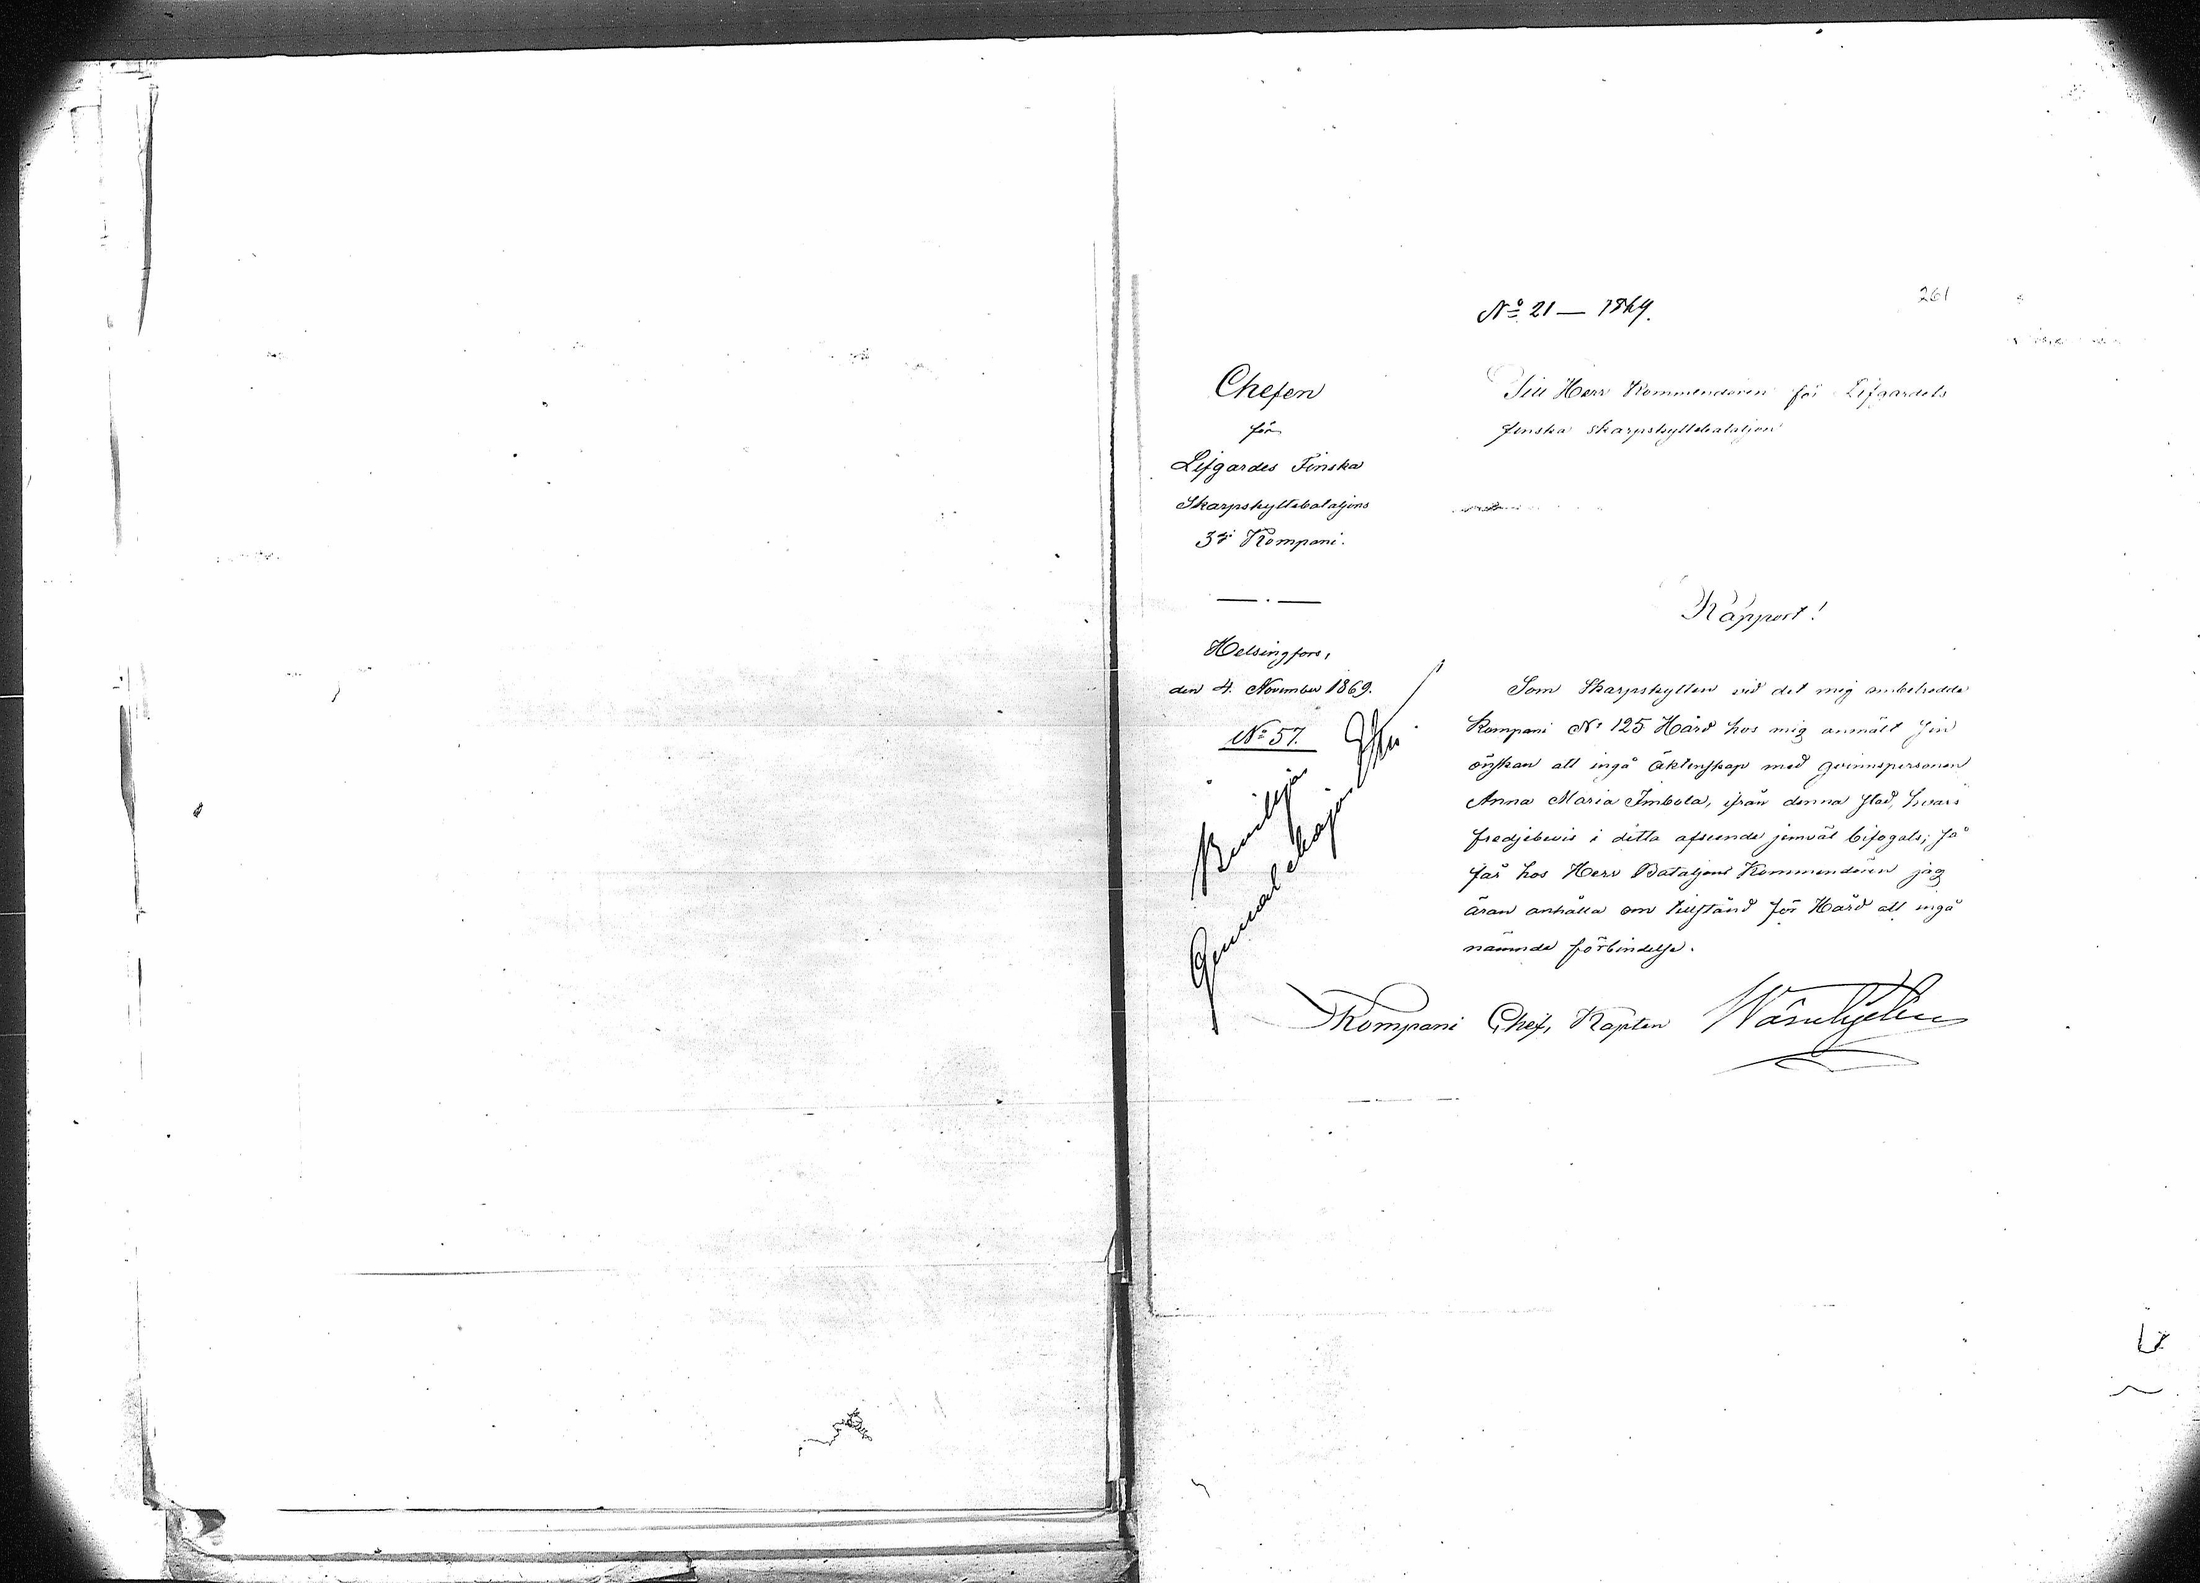 261
No 21 — 1869.
Chefen
för
Lifgardes Finska
Skarpskyttebataljons
3e Kompani.
Helsingfors,
den 4. November 1869.
No 57.
Beviljas
General Major
Till Herr Kommendören för Lifgardets
finska skarpskyttebataljon
Rapport!
Som Skarpskytten vid det mig anbetrodda
Kompani No 125 Hård hos mig anmält sin
önskan att ingå äktenskap med qvinnspersonen
Anna Maria Imbola, ifrån denna stad, hvars
fredjebevis i detta afseende jemväl bifogats; så
får hos Herr Bataljons Kommendören jag
äran anhålla om tillstånd för Hård att ingå
nämnde förbindelse.
Kompani Chef, Kapten